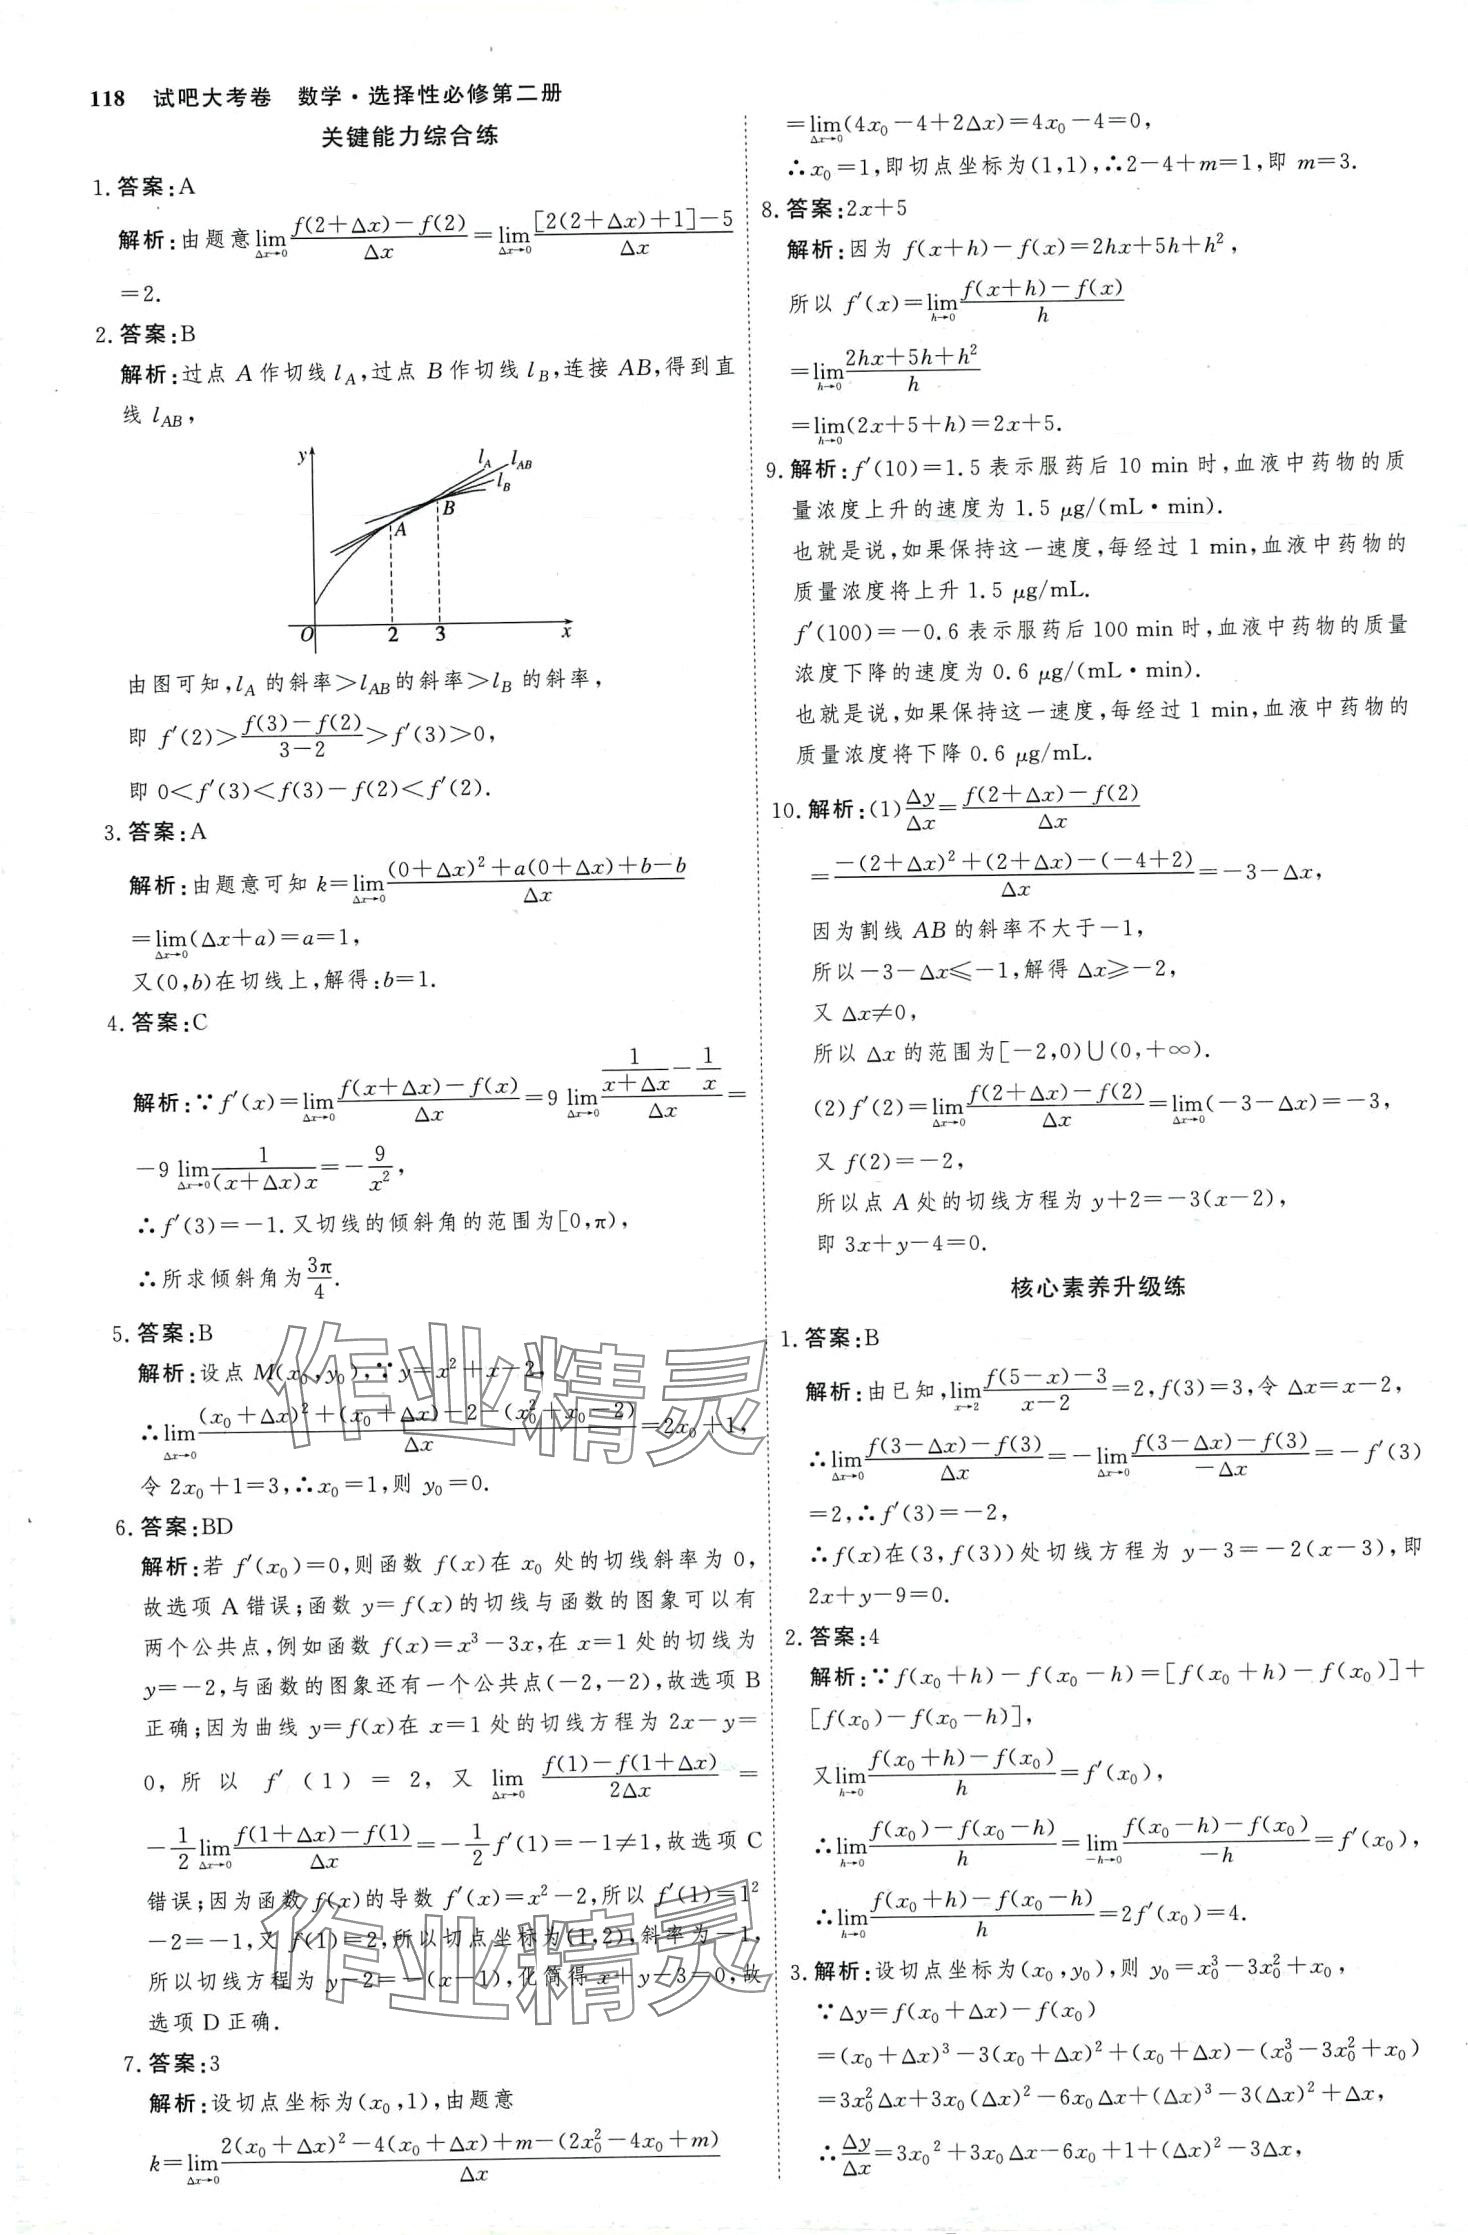 118 试吧大考卷 数学·选择性必修第二册
关键能力综合练
1. 答案:A
解析:由题意 lim(Δx→0) [f(2+Δx)-f(2)]/Δx = lim(Δx→0) {[2(2+Δx)+1]-5}/Δx
=2.
2. 答案:B
解析:过点 A 作切线 l_A,过点 B 作切线 l_B,连接 AB,得到直
线 l_AB,
y l_A l_AB
l_B
B
A
O 2 3 x
由图可知,l_A 的斜率>l_AB的斜率>l_B 的斜率,
即 f′(2)>[f(3)-f(2)]/(3-2)>f′(3)>0,
即 0<f′(3)<f(3)-f(2)<f′(2).
3. 答案:A
解析:由题意可知 k=lim(Δx→0) [(0+Δx)²+a(0+Δx)+b-b]/Δx
=lim(Δx→0)(Δx+a)=a=1,
又(0,b)在切线上,解得:b=1.
4. 答案:C
解析:∵f′(x)=lim(Δx→0) [f(x+Δx)-f(x)]/Δx=9 lim(Δx→0) [1/(x+Δx)-1/x]/Δx=
-9 lim(Δx→0) 1/[(x+Δx)x]=-9/x²,
∴f′(3)=-1.又切线的倾斜角的范围为[0,π),
∴所求倾斜角为3π/4.
5. 答案:B
解析:设点 M(x₀,y₀),∵y=x²+x-2,
∴lim(Δx→0) [(x₀+Δx)²+(x₀+Δx)-2-(x₀²+x₀-2)]/Δx=2x₀+1,
令 2x₀+1=3,∴x₀=1,则 y₀=0.
6. 答案:BD
解析:若 f′(x₀)=0,则函数 f(x)在 x₀ 处的切线斜率为 0,
故选项 A 错误;函数 y=f(x)的切线与函数的图象可以有
两个公共点,例如函数 f(x)=x³-3x,在 x=1 处的切线为
y=-2,与函数的图象还有一个公共点(-2,-2),故选项 B
正确;因为曲线 y=f(x)在 x=1 处的切线方程为 2x-y=
0,所以 f′(1)=2,又 lim(Δx→0) [f(1)-f(1+Δx)]/2Δx=
-1/2 lim(Δx→0) [f(1+Δx)-f(1)]/Δx=-1/2 f′(1)=-1≠1,故选项 C
错误;因为函数 f(x)的导数 f′(x)=x²-2,所以 f′(1)=1²
-2=-1,又 f(1)=2,所以切点坐标为(1,2),斜率为-1,
所以切线方程为 y-2=-(x-1),化简得 x+y-3=0,故
选项 D 正确.
7. 答案:3
解析:设切点坐标为(x₀,1),由题意
k=lim(Δx→0) [2(x₀+Δx)²-4(x₀+Δx)+m-(2x₀²-4x₀+m)]/Δx
=lim(Δx→0)(4x₀-4+2Δx)=4x₀-4=0,
∴x₀=1,即切点坐标为(1,1),∴2-4+m=1,即 m=3.
8. 答案:2x+5
解析:因为 f(x+h)-f(x)=2hx+5h+h²,
所以 f′(x)=lim(h→0) [f(x+h)-f(x)]/h
=lim(h→0) (2hx+5h+h²)/h
=lim(h→0)(2x+5+h)=2x+5.
9. 解析:f′(10)=1.5 表示服药后 10 min 时,血液中药物的质
量浓度上升的速度为 1.5 μg/(mL·min).
也就是说,如果保持这一速度,每经过 1 min,血液中药物的
质量浓度将上升 1.5 μg/mL.
f′(100)=-0.6 表示服药后 100 min 时,血液中药物的质量
浓度下降的速度为 0.6 μg/(mL·min).
也就是说,如果保持这一速度,每经过 1 min,血液中药物的
质量浓度将下降 0.6 μg/mL.
10. 解析:(1)Δy/Δx=[f(2+Δx)-f(2)]/Δx
=[-(2+Δx)²+(2+Δx)-(-4+2)]/Δx=-3-Δx,
因为割线 AB 的斜率不大于-1,
所以-3-Δx≤-1,解得 Δx≥-2,
又 Δx≠0,
所以 Δx 的范围为[-2,0)∪(0,+∞).
(2)f′(2)=lim(Δx→0) [f(2+Δx)-f(2)]/Δx=lim(Δx→0)(-3-Δx)=-3,
又 f(2)=-2,
所以点 A 处的切线方程为 y+2=-3(x-2),
即 3x+y-4=0.
核心素养升级练
1. 答案:B
解析:由已知,lim(x→2) [f(5-x)-3]/(x-2)=2,f(3)=3,令 Δx=x-2,
∴lim(Δx→0) [f(3-Δx)-f(3)]/Δx=-lim(Δx→0) [f(3-Δx)-f(3)]/(-Δx)=-f′(3)
=2,∴f′(3)=-2,
∴f(x)在(3,f(3))处切线方程为 y-3=-2(x-3),即
2x+y-9=0.
2. 答案:4
解析:∵f(x₀+h)-f(x₀-h)=[f(x₀+h)-f(x₀)]+
[f(x₀)-f(x₀-h)],
又lim(h→0) [f(x₀+h)-f(x₀)]/h=f′(x₀),
∴lim(h→0) [f(x₀)-f(x₀-h)]/h=lim(-h→0) [f(x₀-h)-f(x₀)]/(-h)=f′(x₀),
∴lim(h→0) [f(x₀+h)-f(x₀-h)]/h=2f′(x₀)=4.
3. 解析:设切点坐标为(x₀,y₀),则 y₀=x₀³-3x₀²+x₀,
∵Δy=f(x₀+Δx)-f(x₀)
=(x₀+Δx)³-3(x₀+Δx)²+(x₀+Δx)-(x₀³-3x₀²+x₀)
=3x₀²Δx+3x₀(Δx)²-6x₀Δx+(Δx)³-3(Δx)²+Δx,
∴Δy/Δx=3x₀²+3x₀Δx-6x₀+1+(Δx)²-3Δx,
作业精灵
作业精灵